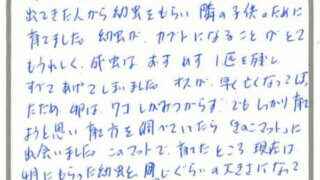 出てきた人から幼虫をもらい 隣の子供のために
育てました。幼虫が、カブトになることが とて
もうれしく、成虫は おす めす 1匹を残し
すべてあげてしまいました。オスが、早く亡くなってしまっ
たため 卵は、7コしかみつからず、でもしっかり育て
ようと思い 育て方を調べていたら「きのこマット」に
出会いました。このマットで、育てたところ 現在は
4月にもらった幼虫と 同じぐらいの大きさになって